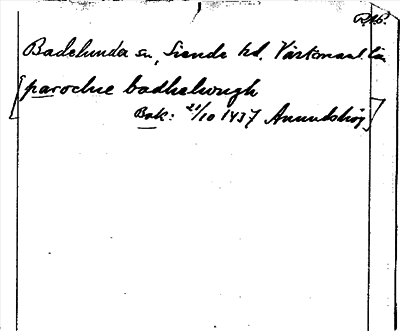 RAp.
Badelunda sn, Siende hd. Västmanl. län
[parochie badhelwngh
Bak: 21/10 1437 Anundshög]